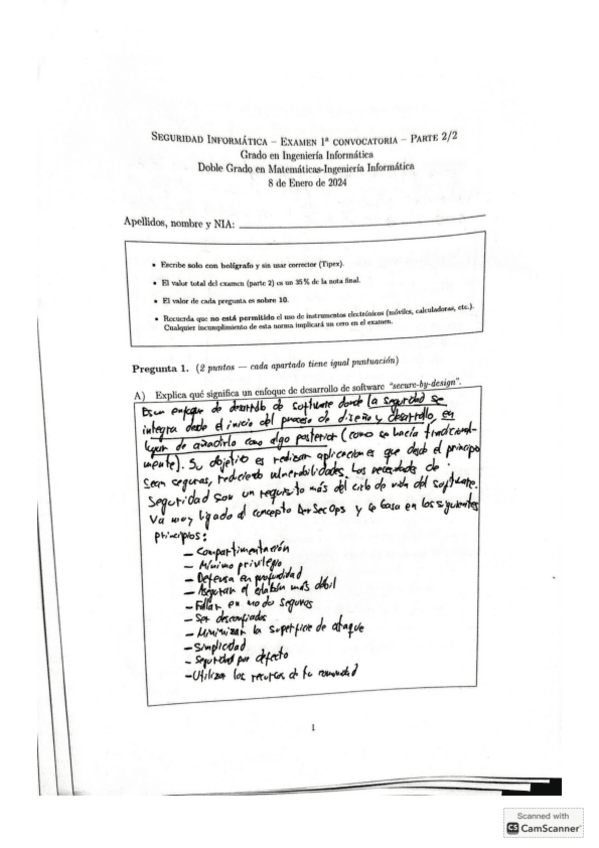 SEGURIDAD INFORMÁTICA – EXAMEN 1ª CONVOCATORIA – PARTE 2/2
Grado en Ingeniería Informática
Doble Grado en Matemáticas-Ingeniería Informática
8 de Enero de 2024
Apellidos, nombre y NIA:
• Escribe solo con bolígrafo y sin usar corrector (Tipex).
• El valor total del examen (parte 2) es un 35% de la nota final.
• El valor de cada pregunta es sobre 10.
• Recuerda que no está permitido el uso de instrumentos electrónicos (móviles, calculadoras, etc.).
Cualquier incumplimiento de esta norma implicará un cero en el examen.
Pregunta 1. (2 puntos — cada apartado tiene igual puntuación)
A) Explica qué significa un enfoque de desarrollo de software "secure-by-design".
Es un enfoque de desarrollo de software donde la seguridad se
integra desde el inicio del proceso de diseño y desarrollo, en
lugar de añadirlo como algo posterior (como se hacía tradicional-
mente). Su objetivo es realizar aplicaciones que desde el principio
sean seguras, reduciendo vulnerabilidades. Las necesidades de
seguridad son un requisito más del ciclo de vida del software.
Va muy ligado al concepto DevSecOps y se basa en los siguientes
principios:
– Compartimentación
– Mínimo privilegio
– Defensa en profundidad
– Asegurar el eslabón más débil
– Fallar en modo seguro
– Ser desconfiados
– Minimizar la superficie de ataque
– Simplicidad
– Seguridad por defecto
– Utilizar los recursos de tu comunidad
1
Scanned with
CS CamScanner